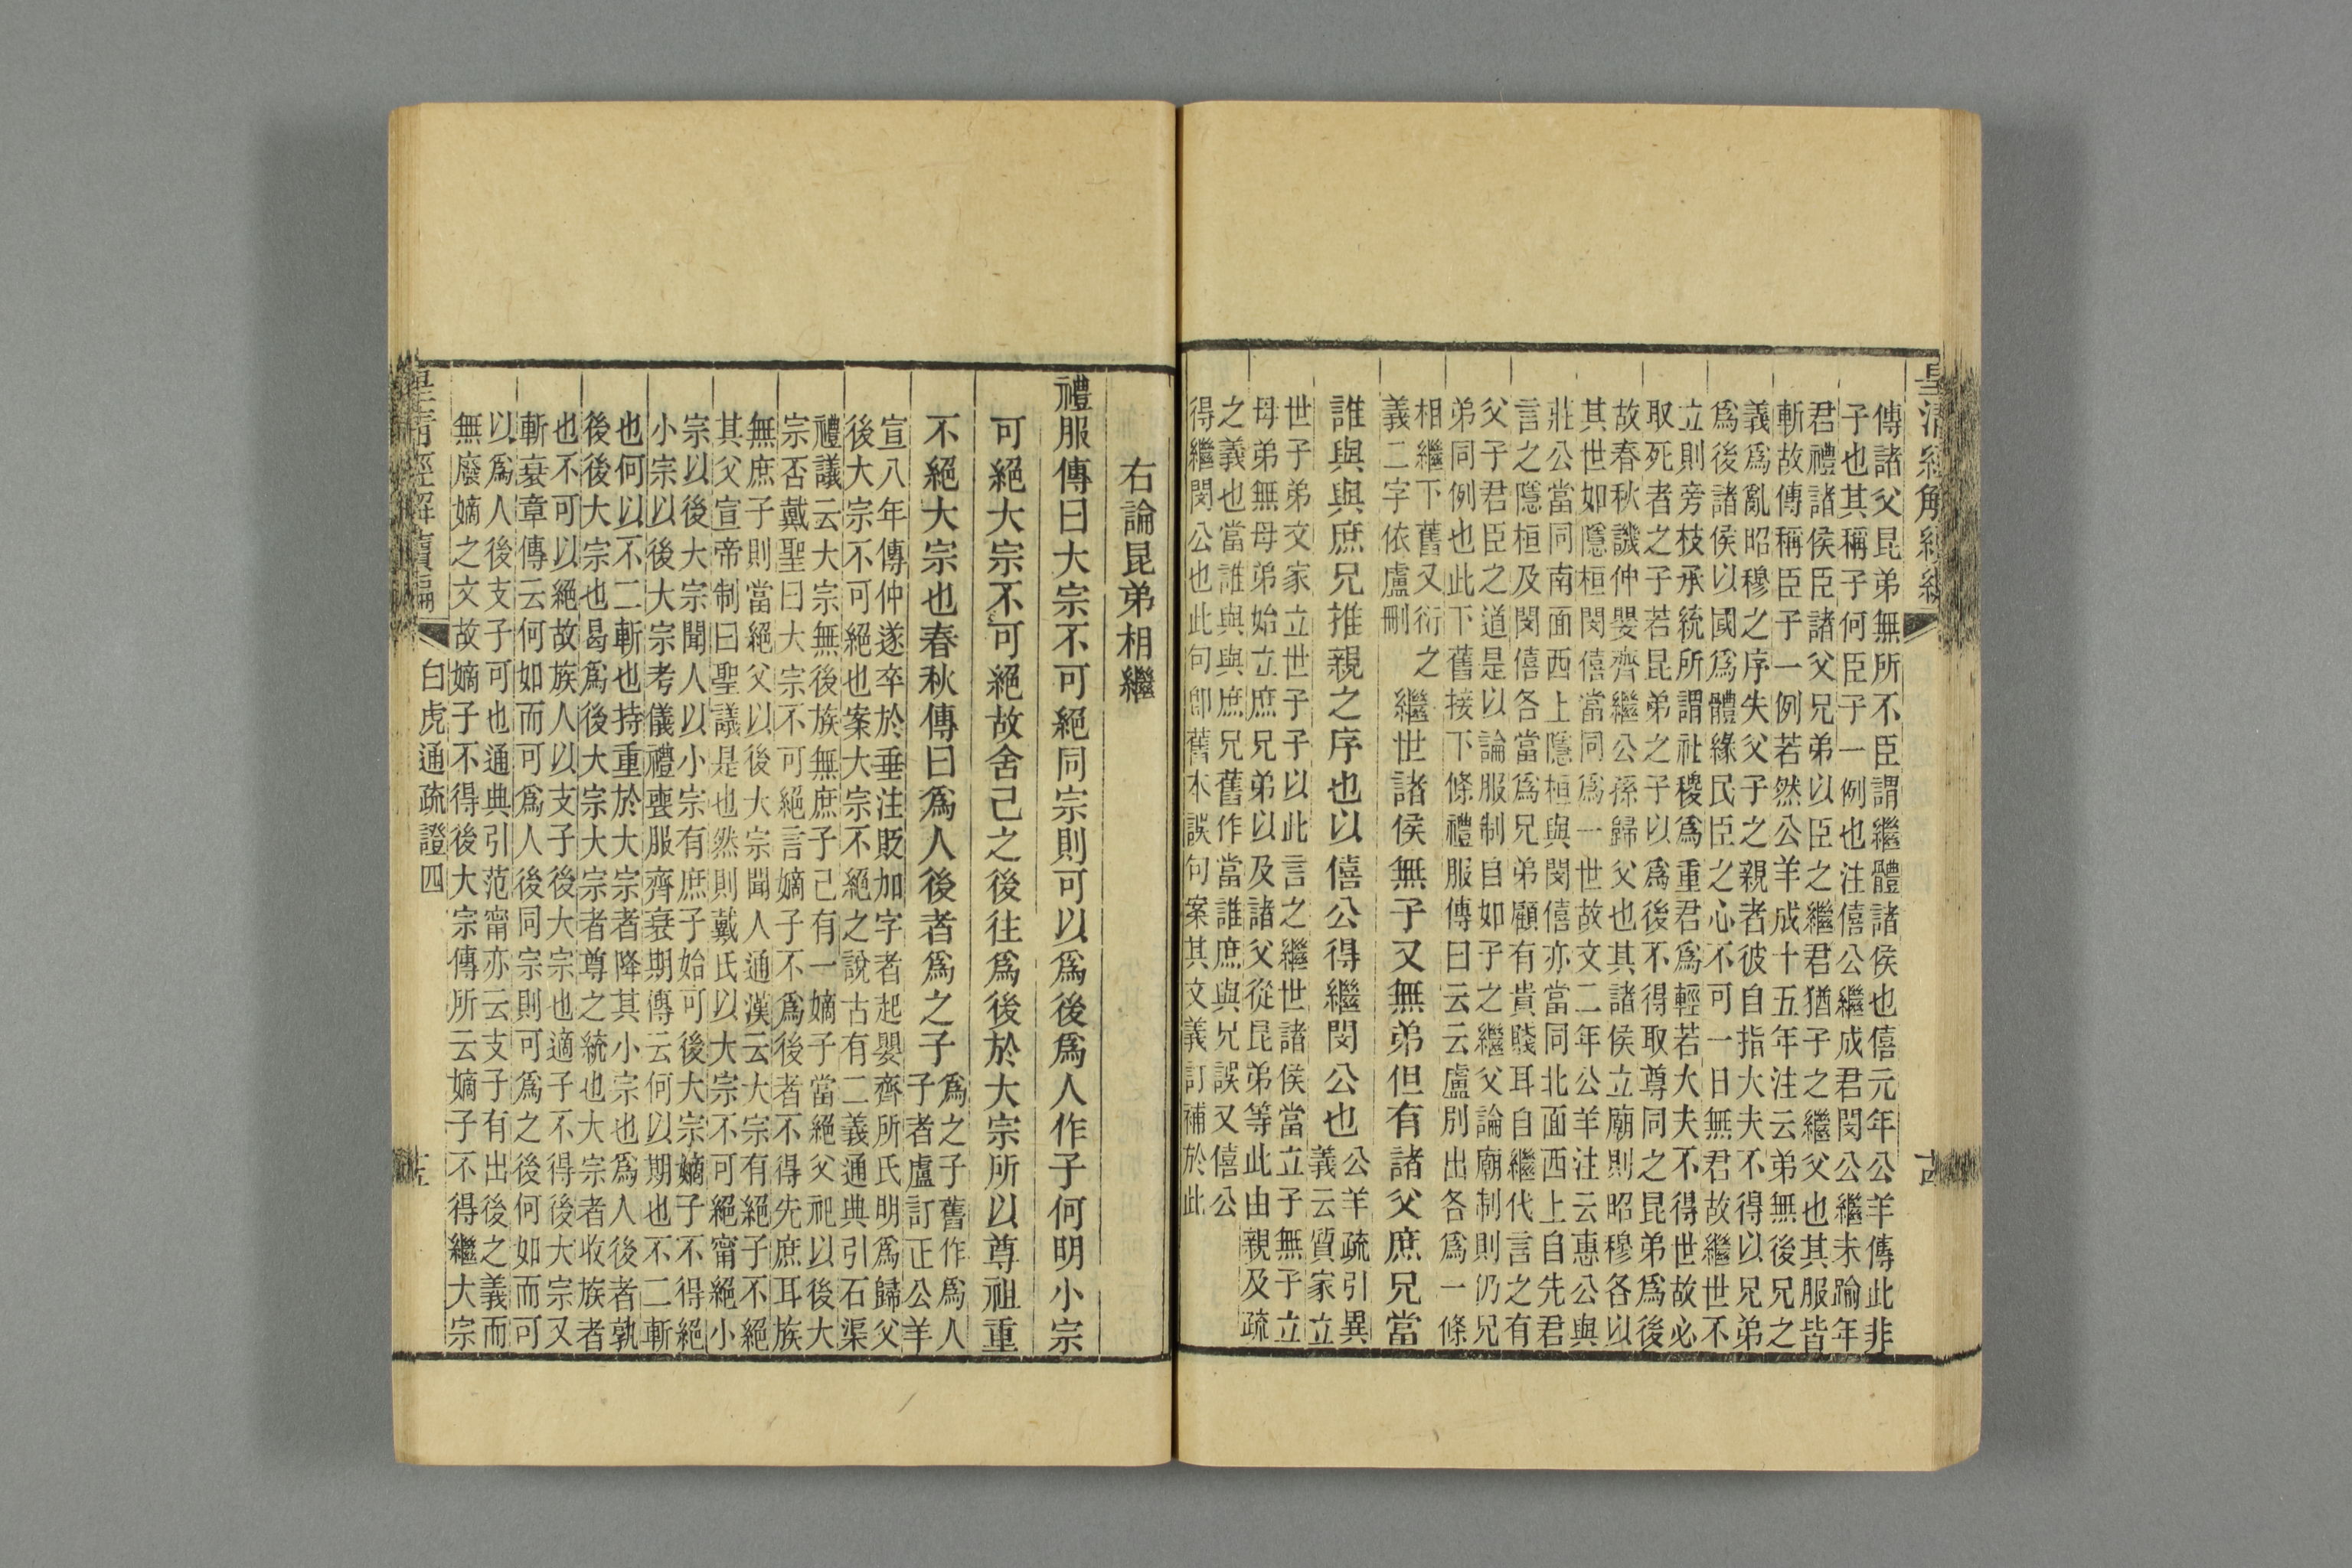 皇清經解續編
傳諸父昆弟無所不臣謂繼體諸侯也僖元年公羊傳此非
子也其稱子何臣子一例也注僖公繼成君閔公繼未踰年
君禮諸侯臣諸父兄弟以臣之繼君猶子之繼父也其服皆
斬故傳稱臣子一例若然公羊成十五年注云弟無後兄之
義爲亂昭穆之序失父子之親者彼自指大夫不得以兄弟
爲後諸侯以國爲體緣民臣之心不可一日無君故繼世不
立則旁枝承統所謂社稷爲重君爲輕若大夫不得世故必
取死者之子若昆弟之子以爲後不得取尊同之昆弟爲後
故春秋譏仲嬰齊繼公孫歸父也其諸侯立廟則昭穆各以
其世如隱桓閔僖當同爲一世故文二年公羊注云惠公與
莊公當同南面西上隱桓與閔僖亦當同北面西上自先君
言之隱桓及閔僖各當爲兄弟顧有貴賤耳自繼代言之有
父子君臣之道是以論服制自如子之繼父論廟制則仍兄
弟同例也此下舊接下條禮服傳曰云云盧別出各爲一條
相繼下舊又衍之
義二字依盧刪
繼世諸侯無子又無弟但有諸父庶兄當
誰與與庶兄推親之序也以僖公得繼閔公也
公羊疏引異
義云質家立
世子弟文家立世子子以此言之繼世諸侯當立子無子立
母弟無母弟始立庶兄弟以及諸父從昆弟等此由親及疏
之義也當誰與與庶兄舊作當誰庶與兄誤又僖公
得繼閔公也此句卽舊本誤句案其文義訂補於此
右論昆弟相繼
禮服傳曰大宗不可絕同宗則可以爲後爲人作子何明小宗
可絕大宗不可絕故舍己之後往爲後於大宗所以尊祖重
不絕大宗也春秋傳曰爲人後者爲之子
爲之子舊作爲人
子者盧訂正公羊
宣八年傳仲遂卒於垂注貶加字者起嬰齊所氏明爲歸父
後大宗不可絕也案大宗不絕之說古有二義通典引石渠
禮議云大宗無後族無庶子己有一嫡子當絕父祀以後大
宗否戴聖曰大宗不可絕言嫡子不爲後者不得先庶耳族
無庶子則當絕父以後大宗聞人通漢云大宗有絕子不絕
其父宣帝制曰聖議是也然則戴氏以大宗不可絕甯絕小
宗以後大宗聞人以小宗有庶子始可後大宗嫡子不得絕
小宗以後大宗考儀禮喪服齊衰期傳云何以期也不二斬
也何以不二斬也持重於大宗者降其小宗也爲人後者孰
後後大宗也曷爲後大宗大宗者尊之統也大宗者收族者
也不可以絕故族人以支子後大宗也適子不得後大宗又
斬衰章傳云何如而可爲人後同宗則可爲之後何如而可
以爲人後支子可也通典引范甯亦云支子有出後之義而
無廢嫡之文故嫡子不得後大宗傳所云嫡子不得繼大宗
皇清經解續編
白虎通疏證四